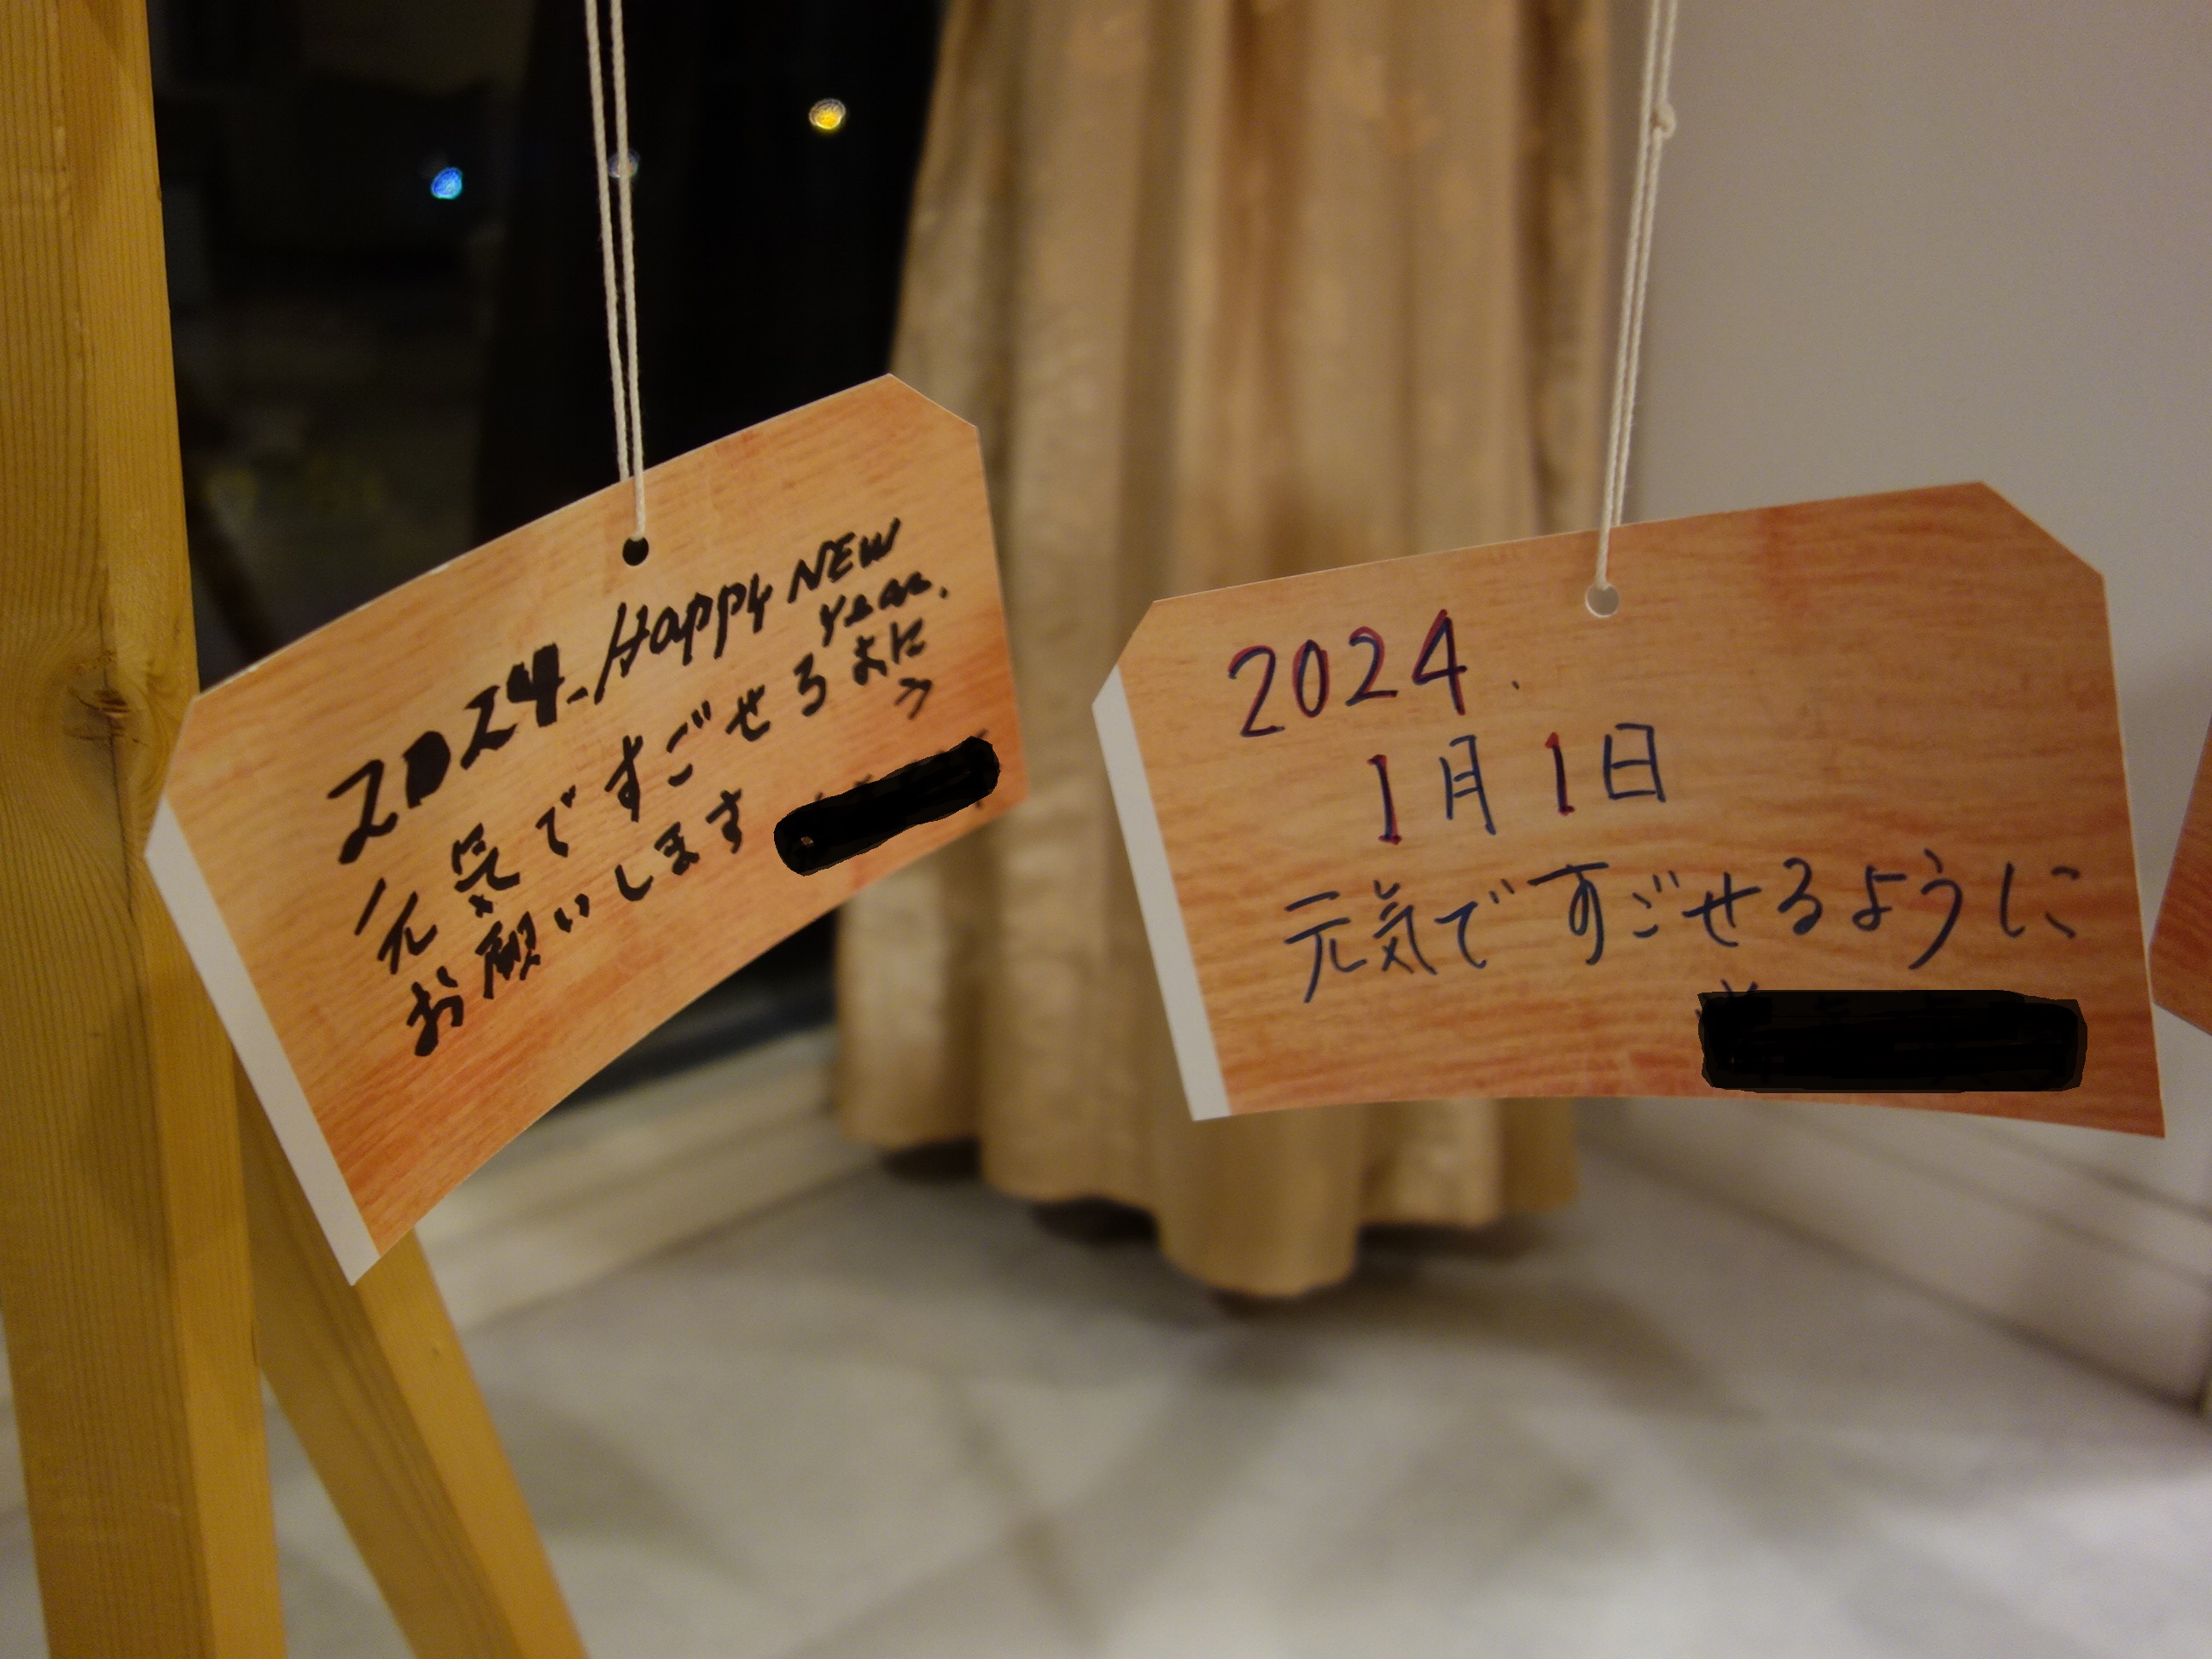 2024. Happy NEW
Year.
元気ですごせるよに
う
お願いします
2024.
1月1日
元気ですごせるように